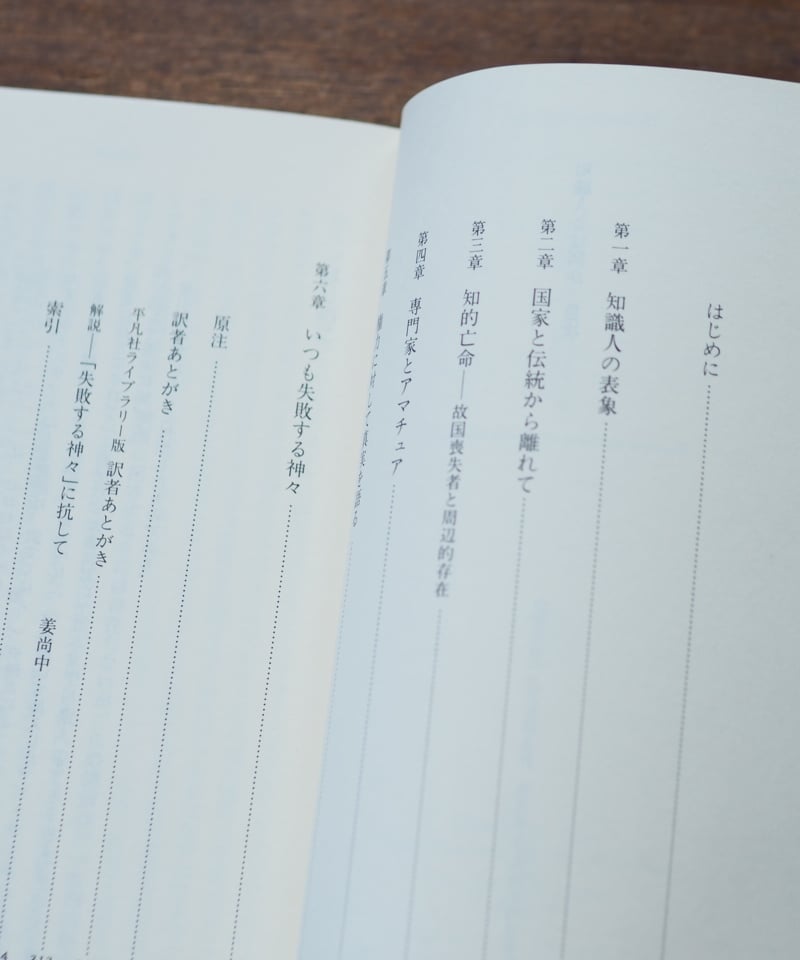 はじめに
第一章 知識人の表象
第二章 国家と伝統から離れて
第三章 知的亡命――故国喪失者と周辺的存在
第四章 専門家とアマチュア
第五章 権力に対して真実を語る
第六章 いつも失敗する神々
原注
訳者あとがき
平凡社ライブラリー版 訳者あとがき
解説――「失敗する神々」に抗して 姜尚中
索引